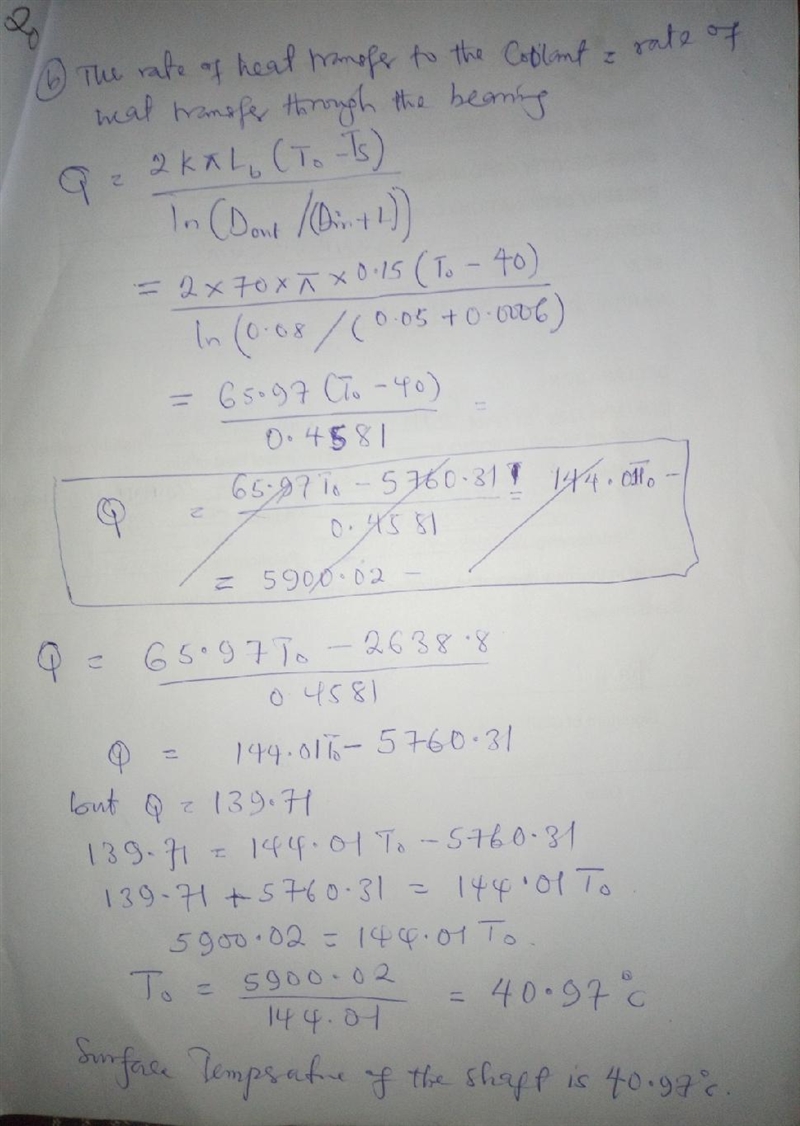 Qo
(b) The rate of heat transfer to the Coolant = rate of
heat transfer through the bearing
Q = 2kπL_b (T_o - T_s) / ln (D_out / (D_in + L))
= 2 × 70 × π × 0.15 (T_o - 40) / ln (0.08 / (0.05 + 0.0006)
= 65.97 (T_o - 40) / 0.4581 =
Q = 65.97 T_o - 5760.31 / 0.4581 = 144.01T_o -
= 5900.02 -
Q = 65.97 T_o - 2638.8 / 0.4581
Q = 144.01T_o - 5760.31
but Q = 139.71
139.71 = 144.01 T_o - 5760.31
139.71 + 5760.31 = 144.01 T_o
5900.02 = 144.01 T_o.
T_o = 5900.02 / 144.01 = 40.97°c
Surface Temperature of the shaft is 40.97°c.